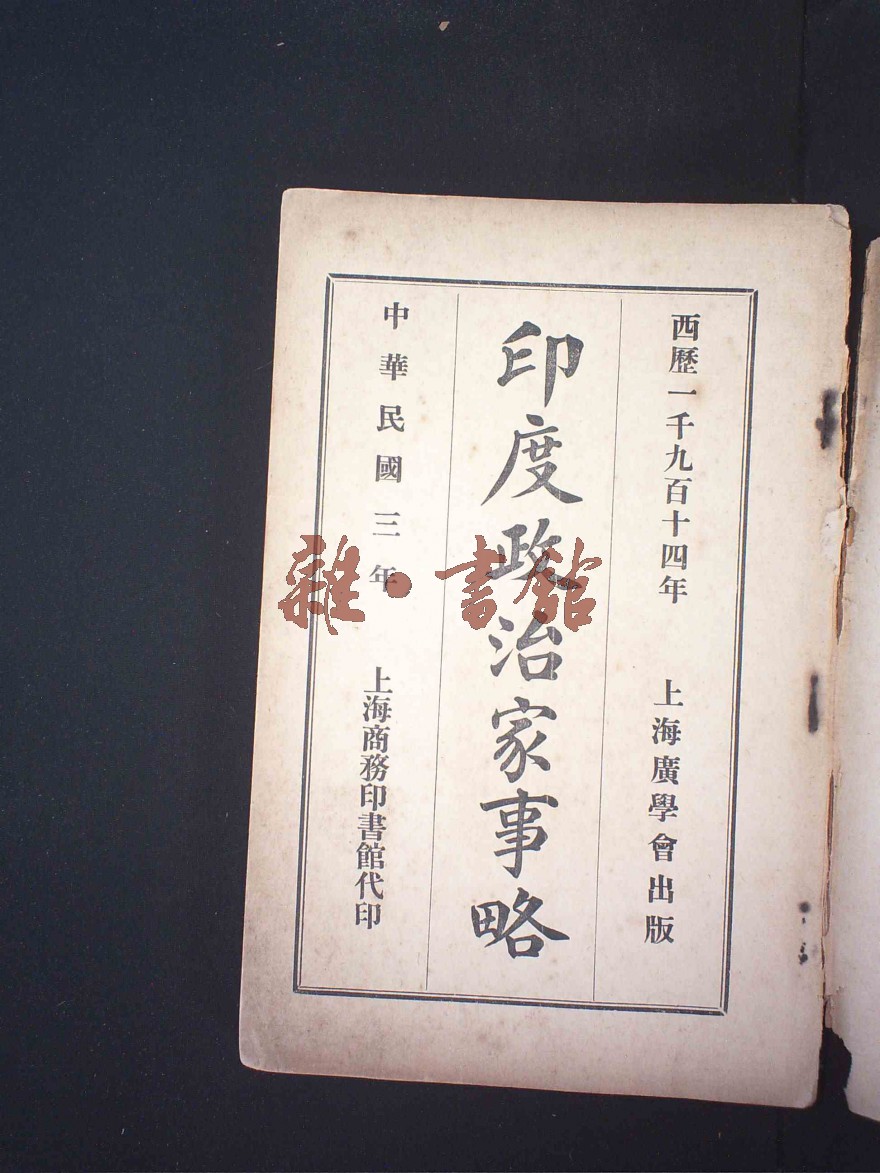 西歷一千九百十四年 上海廣學會出版
印度政治家事略
中華民國三年 上海商務印書館代印
雜·書館